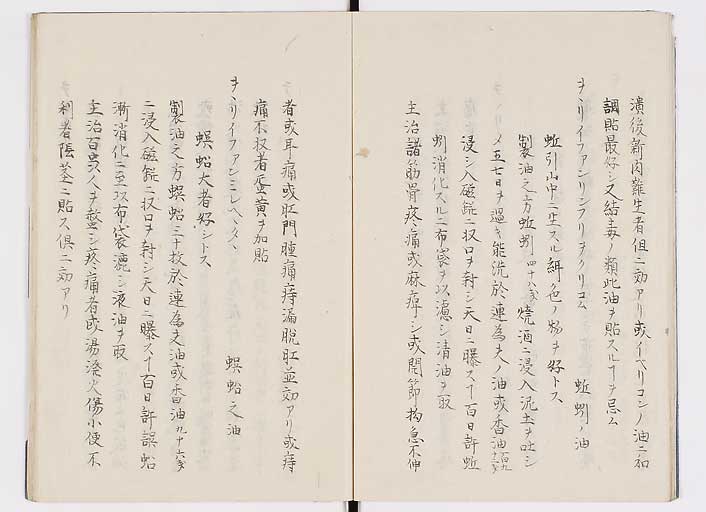 潰後新肉難生者俱ニ効アリ或イペリコンノ油ニ和
調貼最好シ又結毒ノ類此油ヲ貼スル丁ヲ忌ム
ヲヽリイファンリンフリヲクリコム　蚯蚓ノ油
蚯引山中ニ生スル絳色ノ物ヲ好トス
製油之方蚯蚓四十八銭焼酒ニ浸入泥土ヲ吐シ
メ五七日ヲ過キ能洗於連為夫ノ油或香油百九十六銭
浸シ入磁鋎ニ収口ヲ封シ天日ニ曝ス丁百日許蚯
蚓消化スルニ布嚢ヲ以濾シ清油ヲ取
主治諸筋骨疼痛或麻痺シ或関節拘急不伸
者或耳痛或肛門腫痛痔漏脱肛並効アリ或痔
痛不収者蛋黄ヲ加貼
ヲヽリイファンミレヘヘタヘ　蜈蚣之油
蜈蚣大者好シトス
製油之方蜈蚣三十枚於連為夫油或香油九十六銭
ニ浸入磁鋎ニ収口ヲ封シ天日ニ曝ス丁百日許蜈蚣
漸消化ニ至以布袋漉シ液油ヲ取
主治百虫人ヲ螫シ疼痛者或湯溌火傷小便不
利者陰茎ニ貼ス俱ニ効アリ